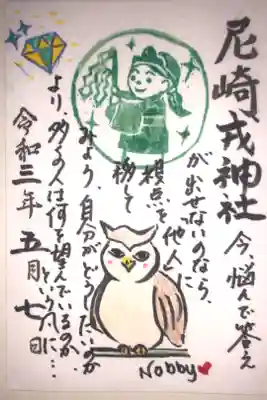 尼崎戎神社
今、悩んで答え
が出せないのなら、
視点を「他人」に
移して
みよう、自分がどうしたいのか
より、多くの人は何を望んでいるのか、
というふうに…
令和三年五月七日
Nobby